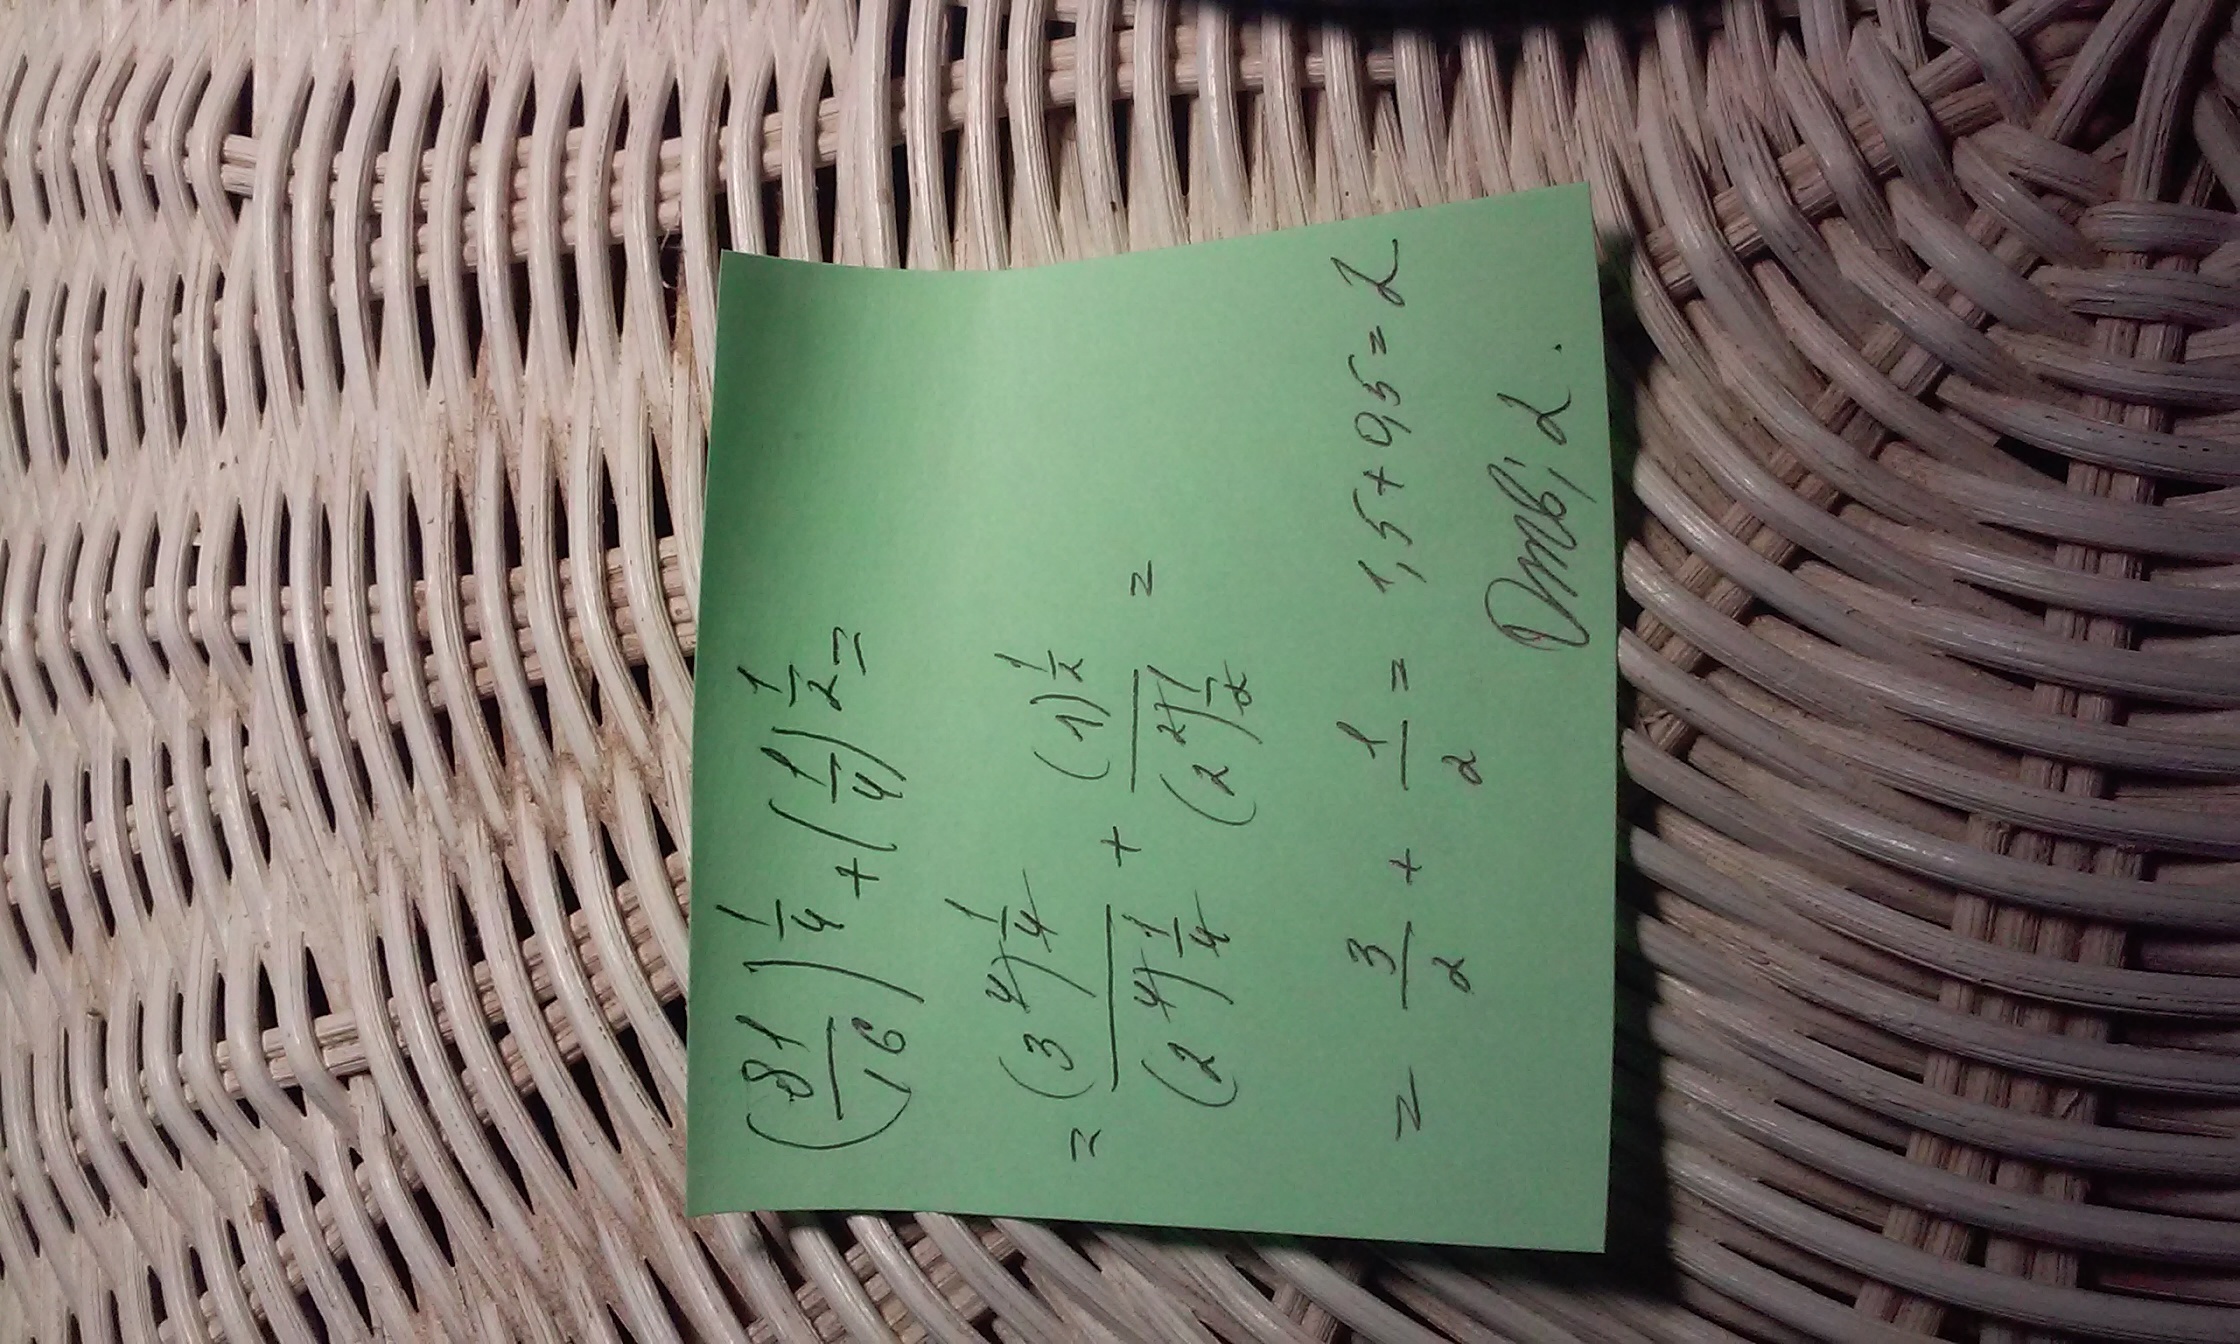 (81/16)^1/4 + (1/4)^1/2 =
= (3^4)^1/4 / (2^4)^1/4 + (1)^1/2 / (2^2)^1/2 =
= 3/2 + 1/2 = 1,5 + 0,5 = 2
Отв; 2.